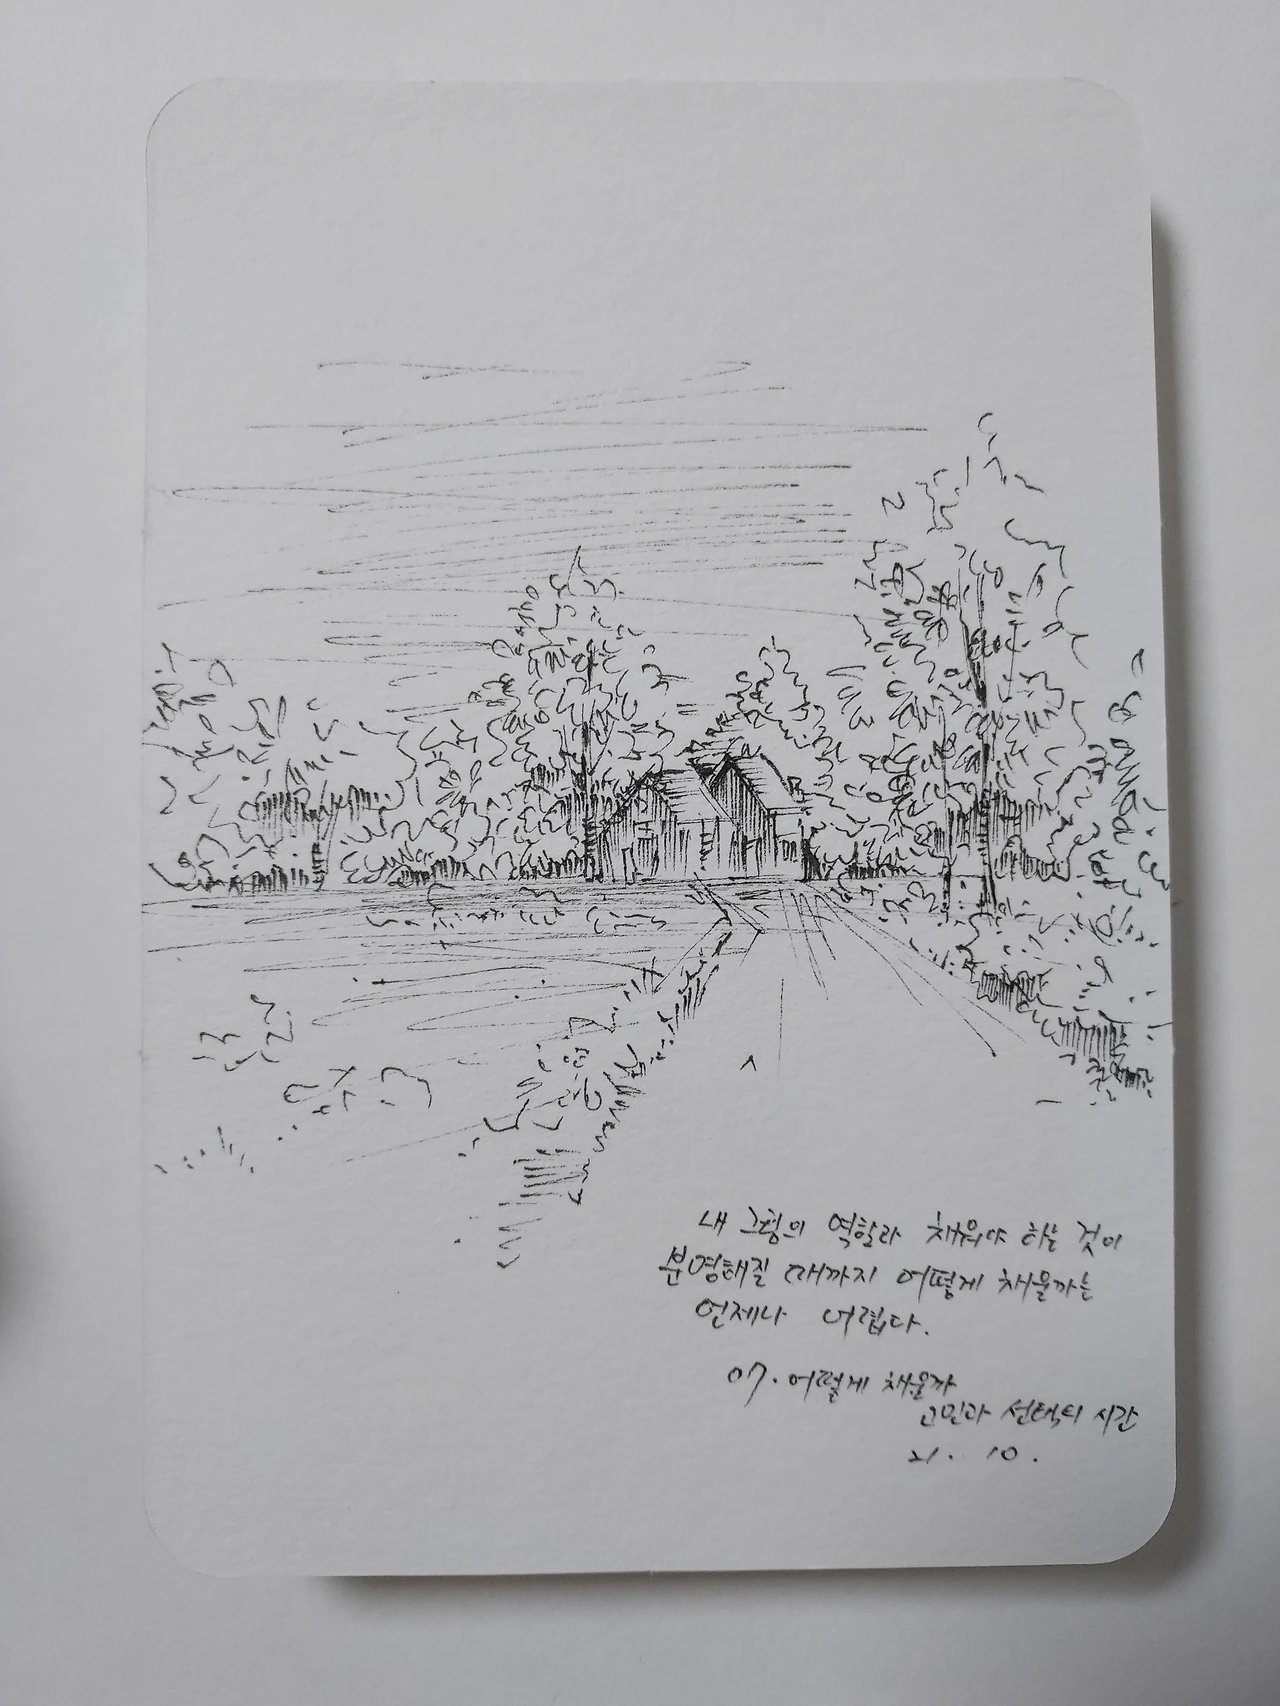 내 그림의 역할과 채워야 하는 것이
분명해질 때까지 어떻게 채울까는
언제나 어렵다.
07. 어떻게 채울까
고민과 선택의 시간
21. 10.